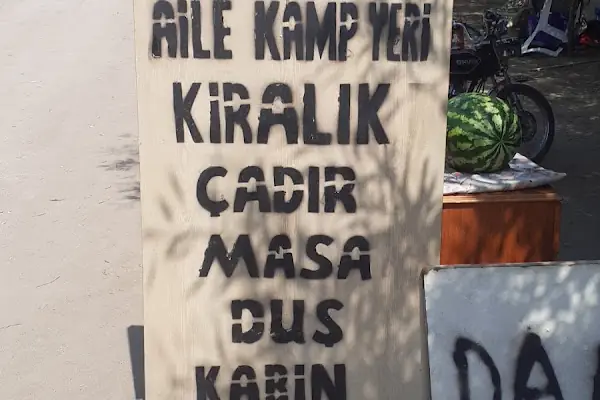 AİLE KAMP YERİ
KİRALIK
ÇADIR
MASA
DUŞ
KABİN
DA